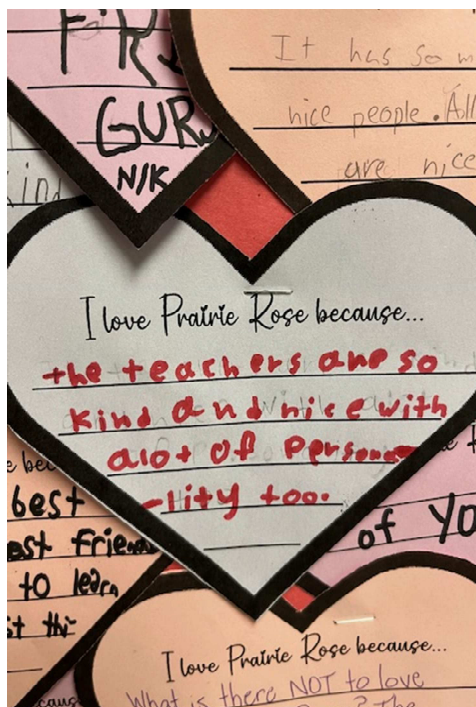 GUR
N/K
It has so m
nice people. All
are nice
I love Prairie Rose because...
the teachers are so
kind and nice with
alot of persona
-lity too.
best
est friends
to learn
of YO
I love Prairie Rose because...
What is there NOT to love